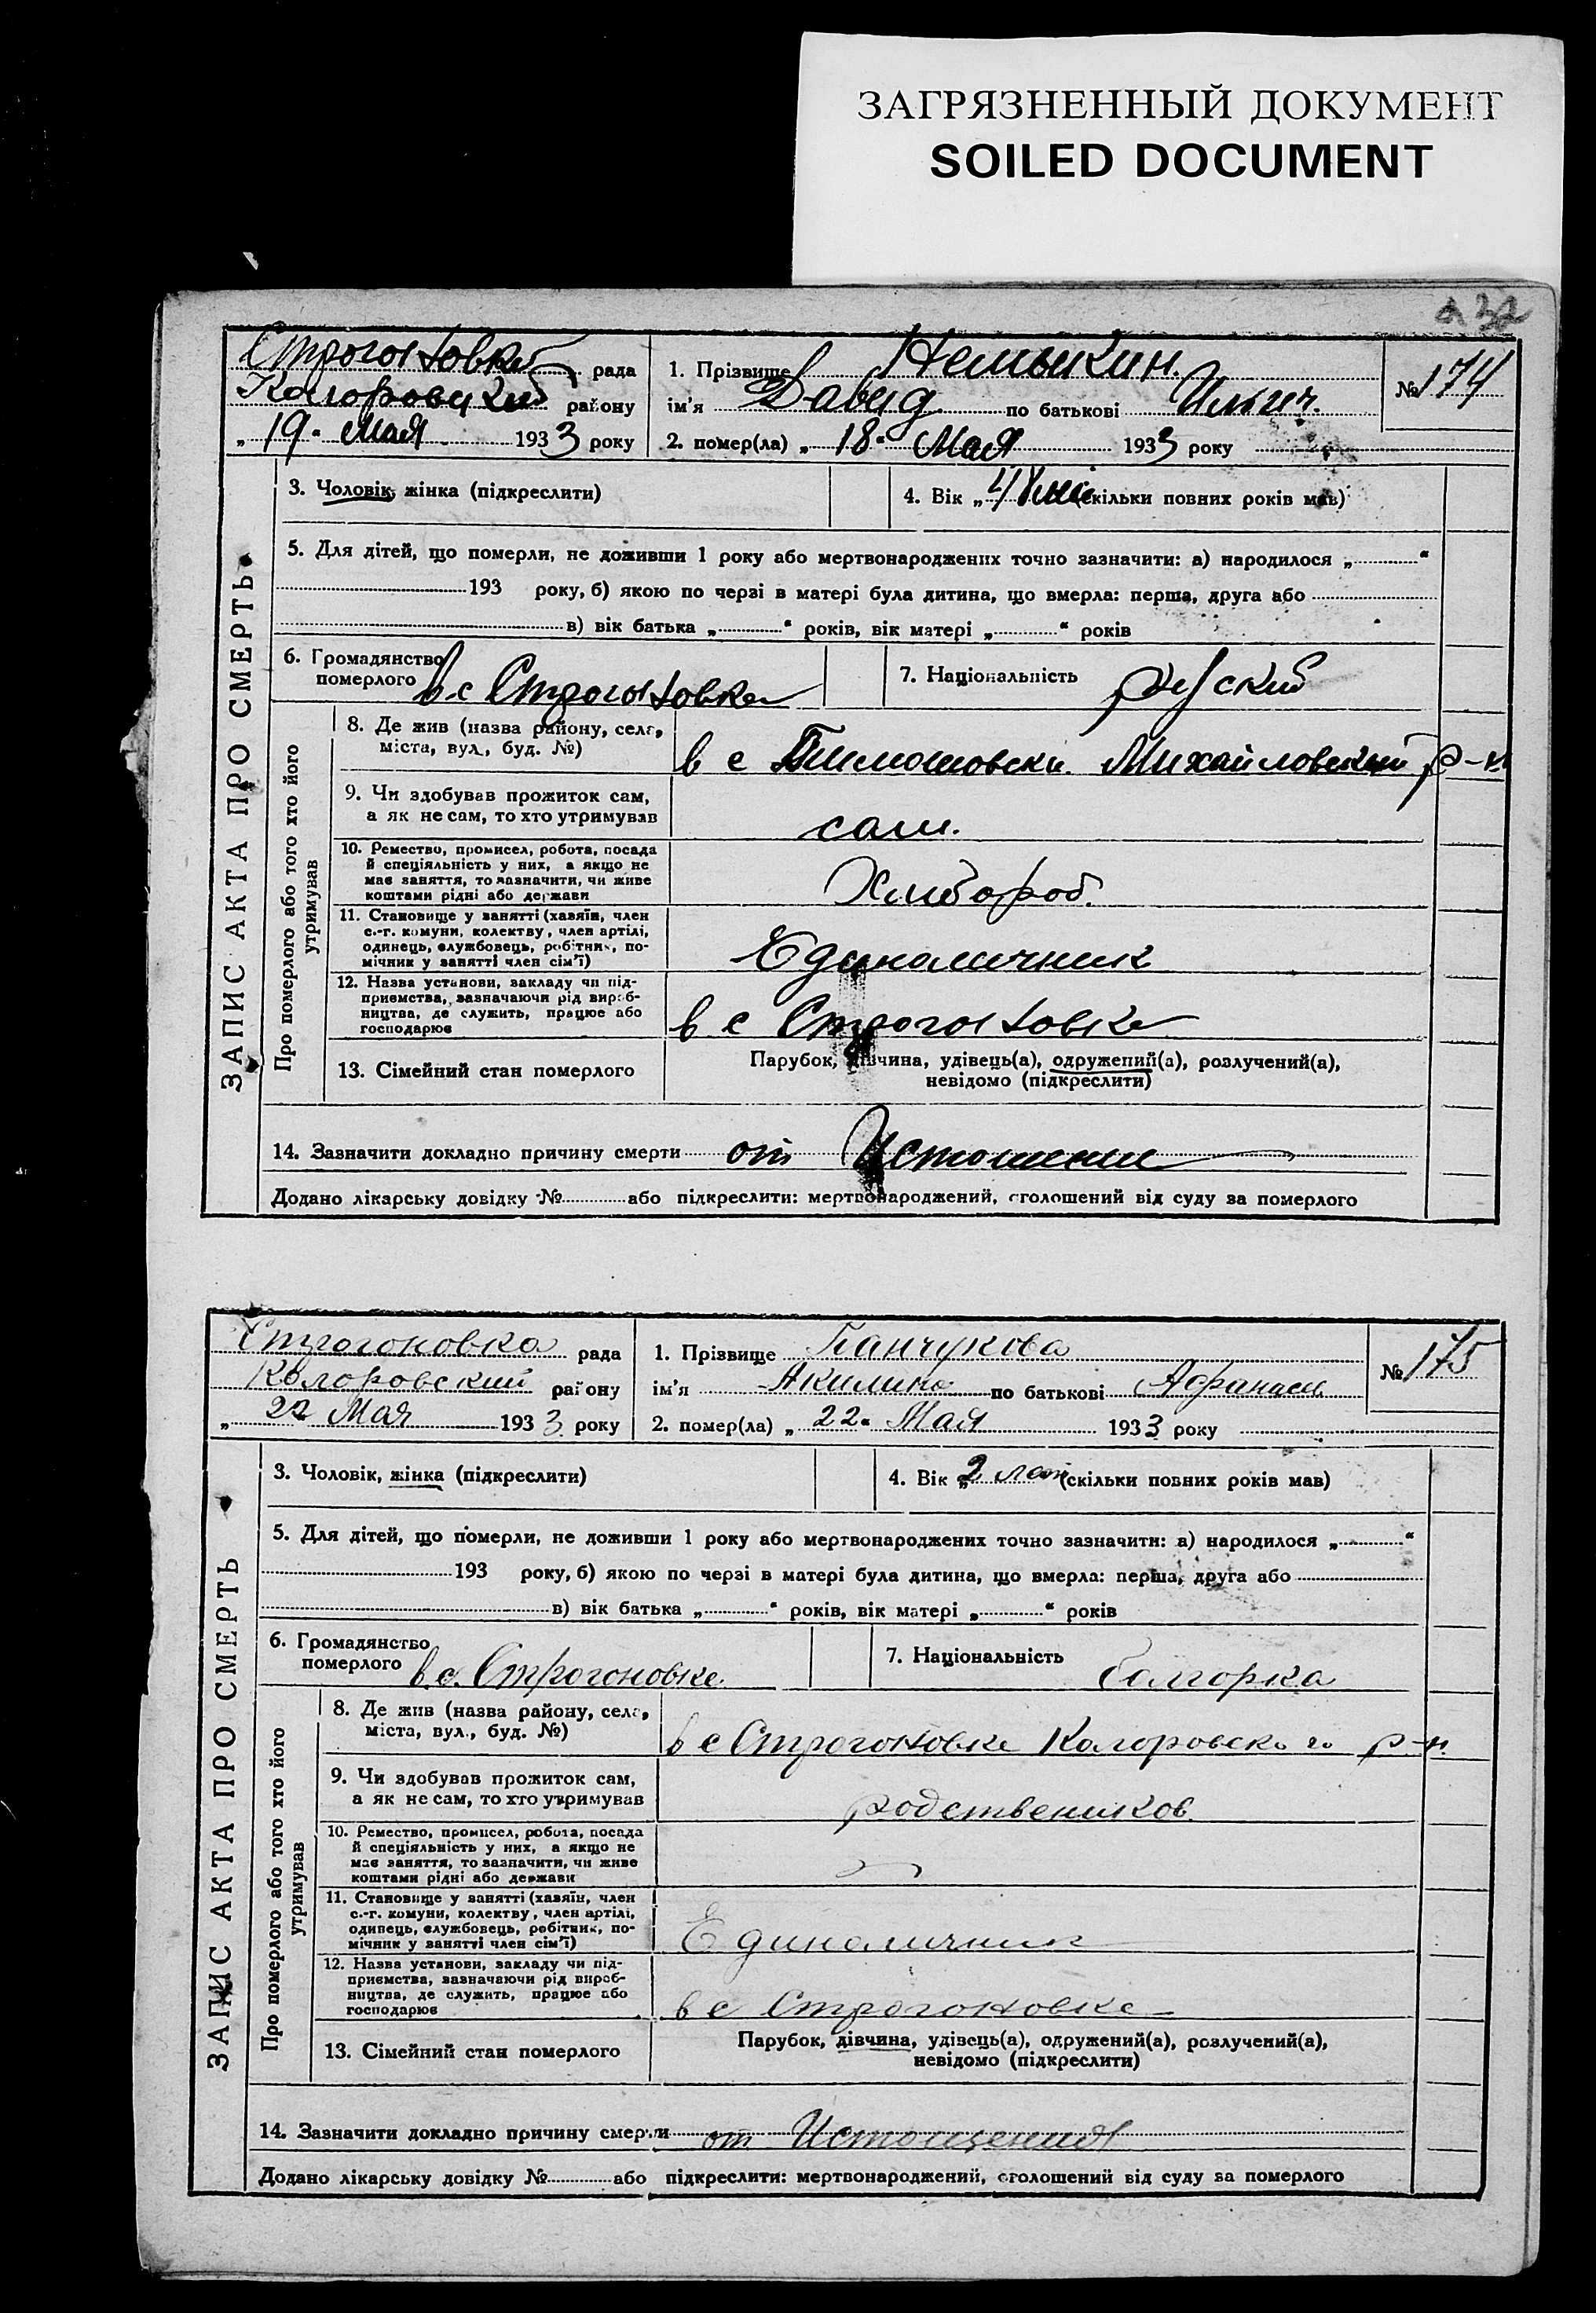 ЗАГРЯЗНЕННЫЙ ДОКУМЕНТ
SOILED DOCUMENT
ЗАПИС АКТА ПРО СМЕРТЬ
Строгоновка рада
Коларовский району
„ 19 " Мая 1933 року
1. Прізвище
ім'я Давид по батькові Ильич.
2. помер(ла) „ 18 " Мая 1933 року
№ 174
3. Чоловік, жінка (підкреслити)
4. Вік „ (скільки повних років мав)
5. Для дітей, що померли, не доживши 1 року або мертвонароджених точно зазначити: а) народилося „ "
193 року, б) якою по черзі в матері була дитина, що вмерла: перша, друга або
в) вік батька „ " років, вік матері „ " років
6. Громадянство
померлого в с Строгоновке
7. Національність русский
Про померлого або того хто його
утримував
8. Де жив (назва району, села,
міста, вул., буд. №)
в с Тимошовски Михайловский р-н
9. Чи здобував прожиток сам,
а як не сам, то хто утримував
сам.
10. Ремество, промисел, робота, посада
й спеціяльність у них, а якщо не
має заняття, то зазначити, чи живе
коштами рідні або держави
Хлибороб.
11. Становище у занятті (хазяїн, член
с.-г. комуни, колективу, член артілі,
одинець, службовець, робітник, по-
мічник у занятті член сім'ї)
Единоличник
12. Назва установи, закладу чи під-
приємства, зазначаючи рід вироб-
ництва, де служить, працює або
господарює
в с Строгоновке
13. Сімейний стан померлого
Парубок, дівчина, удівець(а), одружений(а), розлучений(а),
невідомо (підкреслити)
14. Зазначити докладно причину смерти от Истощении
Додано лікарську довідку № або підкреслити: мертвонароджений, оголошений від суду за померлого
ЗАПИС АКТА ПРО СМЕРТЬ
Строгоновка рада
Коларовский району
„ 22 Мая 1933 року
1. Прізвище Панчукова
ім'я Акилина по батькові Афанаси
2. помер(ла) „ 22 " Мая 1933 року
№ 175
3. Чоловік, жінка (підкреслити)
4. Вік „ 2 лет (скільки повних років мав)
5. Для дітей, що померли, не доживши 1 року або мертвонароджених точно зазначити: а) народилося „ "
193 року, б) якою по черзі в матері була дитина, що вмерла: перша, друга або
в) вік батька „ " років, вік матері „ " років
6. Громадянство
померлого в с. Строгоновке
7. Національність болгорка
Про померлого або того хто його
утримував
8. Де жив (назва району, села,
міста, вул., буд. №)
в с Строгоновке Коларовского р-н.
9. Чи здобував прожиток сам,
а як не сам, то хто утримував
родствеников
10. Ремество, промисел, робота, посада
й спеціяльність у них, а якщо не
має заняття, то зазначити, чи живе
коштами рідні або держави
11. Становище у занятті (хазяїн, член
с.-г. комуни, колективу, член артілі,
одинець, службовець, робітник, по-
мічник у занятті член сім'ї)
Единоличник
12. Назва установи, закладу чи під-
приємства, зазначаючи рід вироб-
ництва, де служить, працює або
господарює
в с Строгоновке
13. Сімейний стан померлого
Парубок, дівчина, удівець(а), одружений(а), розлучений(а),
невідомо (підкреслити)
14. Зазначити докладно причину смерти от Истощения
Додано лікарську довідку № або підкреслити: мертвонароджений, оголошений від суду за померлого